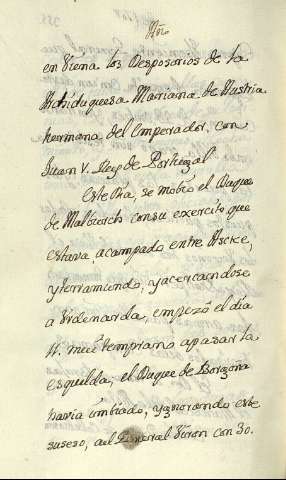 en Viena los Desposorios de la
Archiduquesa Mariana de Austria
hermana del Emperador, con
Juan V. Rey de Portugal
Este Dia, se mobió el Duque
de Malburch con su exercito que
estava acampado entre Ascke,
y terramundo, y acercandose
a Vrdenarda, empezó el dia
11. mui temprano a pasar la
esquelda; el Duque de Borgona
havia imbiado, ygnorando este
suseso, al General Viron con 30.